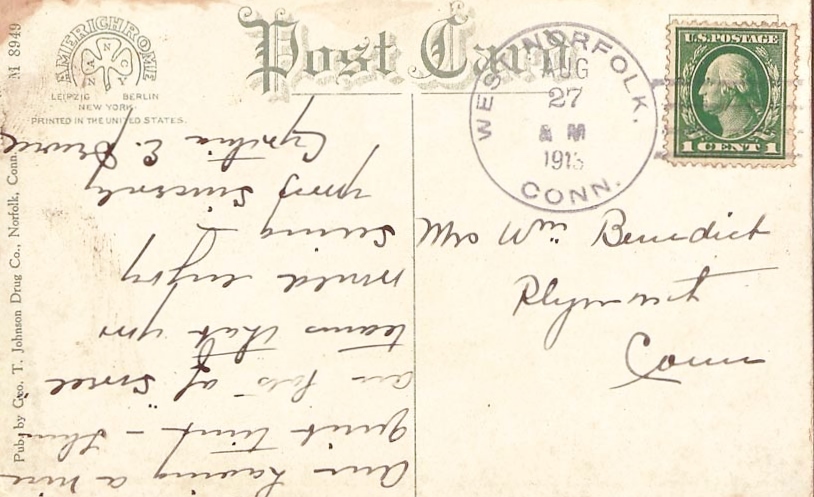 M 8949
AMERICHROME
A N C Y N A
LEIPZIG BERLIN
NEW YORK
PRINTED IN THE UNITED STATES.
Pub. by Geo. T. Johnson Drug Co., Norfolk, Conn.
Post Card
WEST NORFOLK,
AUG
27
AM
1913
CONN.
U.S. POSTAGE
1 CENT 1
Mrs Wm Benedict
Plymouth
Conn
Am having a nice
quiet time - There
are lots of
teams that you
would enjoy
seeing
yours Sincerely
Cynthia E.